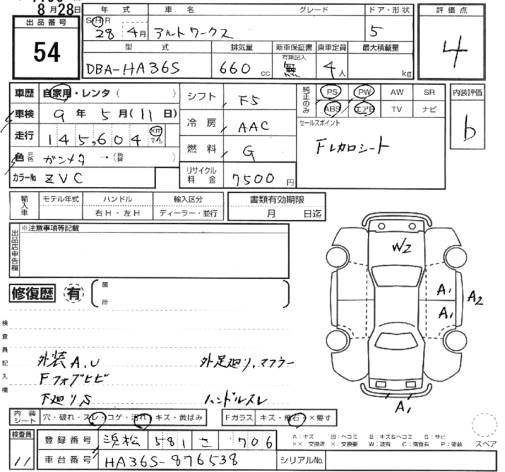 8月28日
出品番号
54
年式 車名 グレード ドア・形状 評価点
S・H・R
28年 4月 アルトワークス 5
4
型式 排気量 新車保証書 乗車定員 最大積載量
DBA-HA36S 660cc 無 4人 kg
車歴 自家用・レンタ( )
車検 9年 5月(11日)
走行 145,604 km
色 ガンメタ →(替 )
カラーNo ZVC
シフト F5
冷房 AAC
燃料 G
リサイクル料金 7500円
純正のみ PS PW AW SR
ABS エアB TV ナビ
セールスポイント
Fレカロシート
内装評価
b
輸入車 モデル年式 ハンドル 輸入区分
右H・左H ディーラー・並行
書類有効期限
月 日迄
出品店申告欄
※注意事項等記載
修復歴 有 箇所
検査員記入欄
外装A.U 外足廻り、マフラー
Fフォグヒビ
下廻りS ハンドルスレ
W2
A1
A1
A2
A1
内装シート 穴・破れ・スレ・コゲ・汚れ・キズ・黄ばみ
Fガラス キズ・飛石・×要す
A:キズ U:ヘコミ B:キズ&ヘコミ S:サビ
スペア
検査員
11
登録番号 浜松 581 さ 706
車台番号 HA36S-876538
シリアルNo.